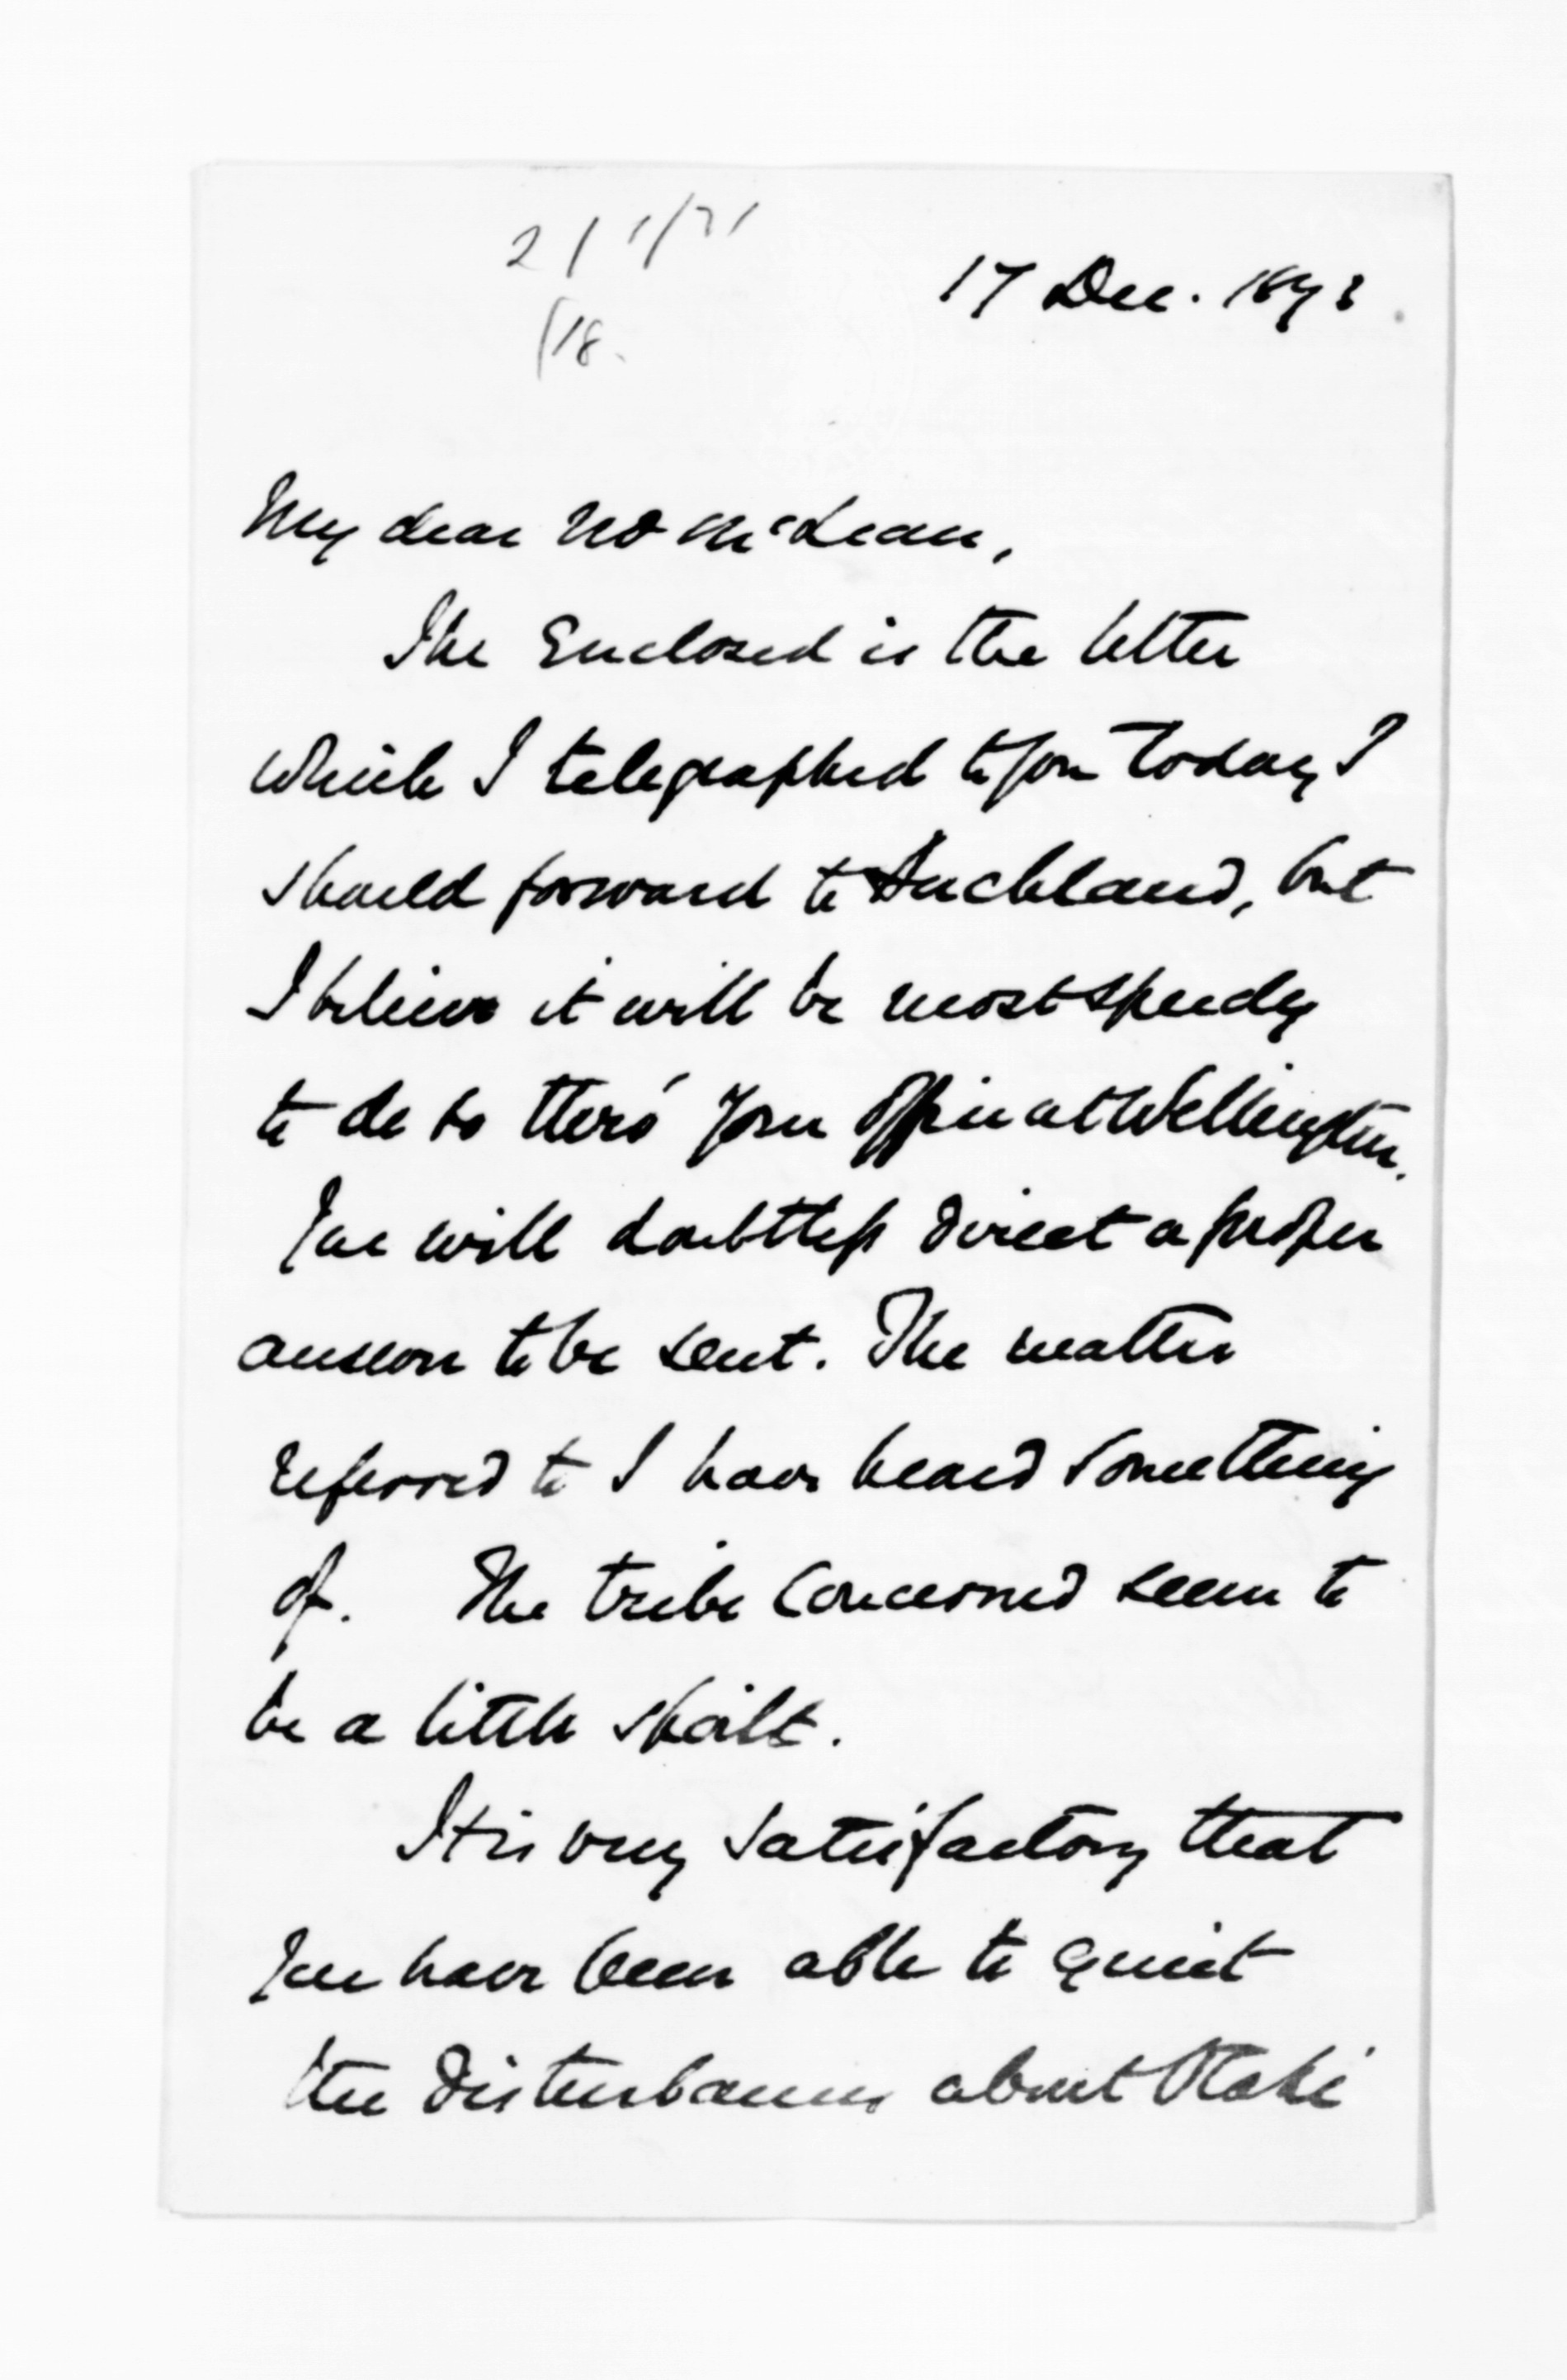 17 Dec. 1873.
My dear Mr McLean,
The Enclosed is the letter
which I telegraphed to you today I
should forward to Auckland, but
I believe it will be most speedy
to do so thro' your Office at Wellington.
You will doubtless direct a proper
answer to be sent. The matter
referred to I have heard something
of. The tribe concerned seem to
be a little spoilt.
It is very satisfactory that
you have been able to quiet
the disturbances about Otaki